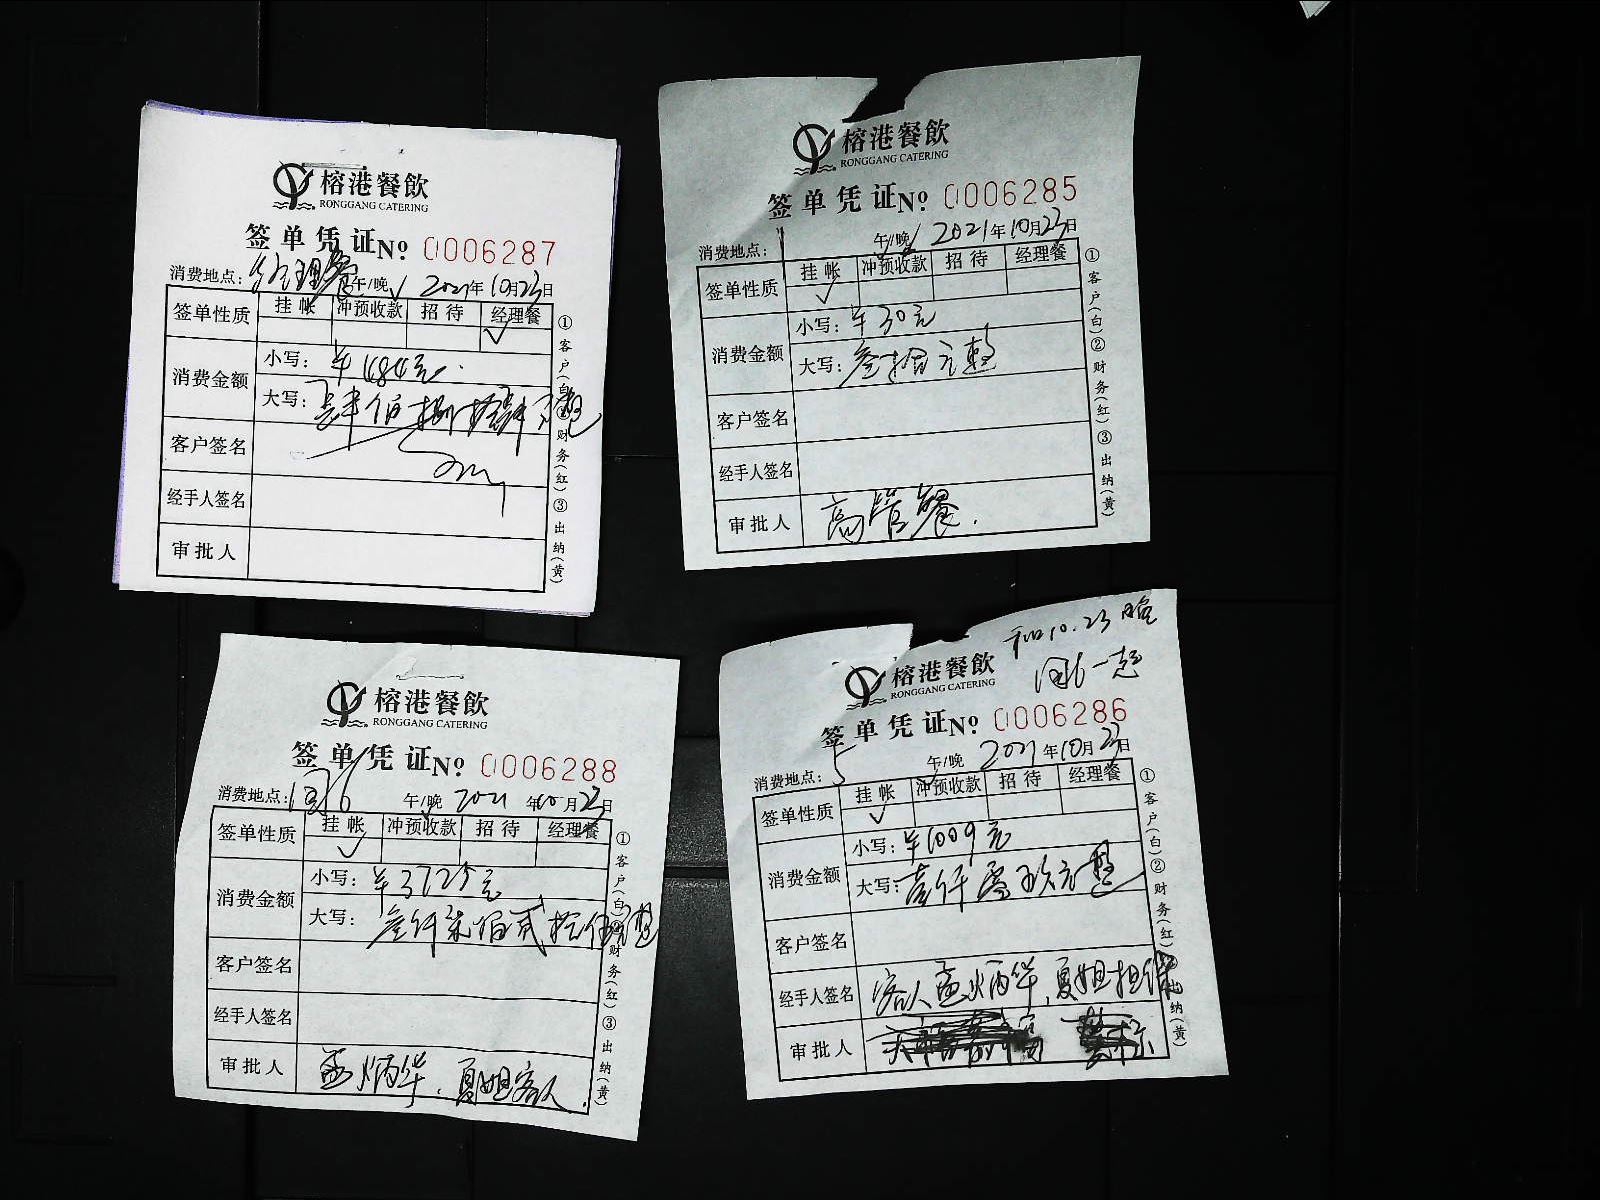 榕港餐飲
RONGGANG CATERING
签单凭证 No 0006287
消费地点：经理餐 午/晚✓ 2021年10月23日
签单性质 挂帐 冲预收款 招待 经理餐
✓
消费金额 小写：¥484元.
大写：肆佰捌拾肆元整
客户签名
经手人签名
审批人
①客户(白)②财务(红)③出纳(黄)
榕港餐飲
RONGGANG CATERING
签单凭证 No 0006285
消费地点：1 午/晚✓ 2021年10月23日
签单性质 挂帐 冲预收款 招待 经理餐
✓
消费金额 小写：¥30元
大写：叁拾元整
客户签名
经手人签名
审批人 高管餐.
①客户(白)②财务(红)③出纳(黄)
榕港餐飲
RONGGANG CATERING
签单凭证 No 0006288
消费地点： 午/晚✓ 2021年10月23日
签单性质 挂帐 冲预收款 招待 经理餐
✓
消费金额 小写：¥3725元
大写：叁仟柒佰贰拾伍元整
客户签名
经手人签名
审批人 孟炳华.夏姐客人.
①客户(白)②财务(红)③出纳(黄)
和10.23晚
一起
榕港餐飲
RONGGANG CATERING
签单凭证 No 0006286
消费地点：5 午/晚 2021年10月23日
签单性质 挂帐 冲预收款 招待 经理餐
✓
消费金额 小写：¥1009元
大写：壹仟零玖元整
客户签名
经手人签名 客人孟炳华,夏姐担保
审批人
①客户(白)②财务(红)③出纳(黄)